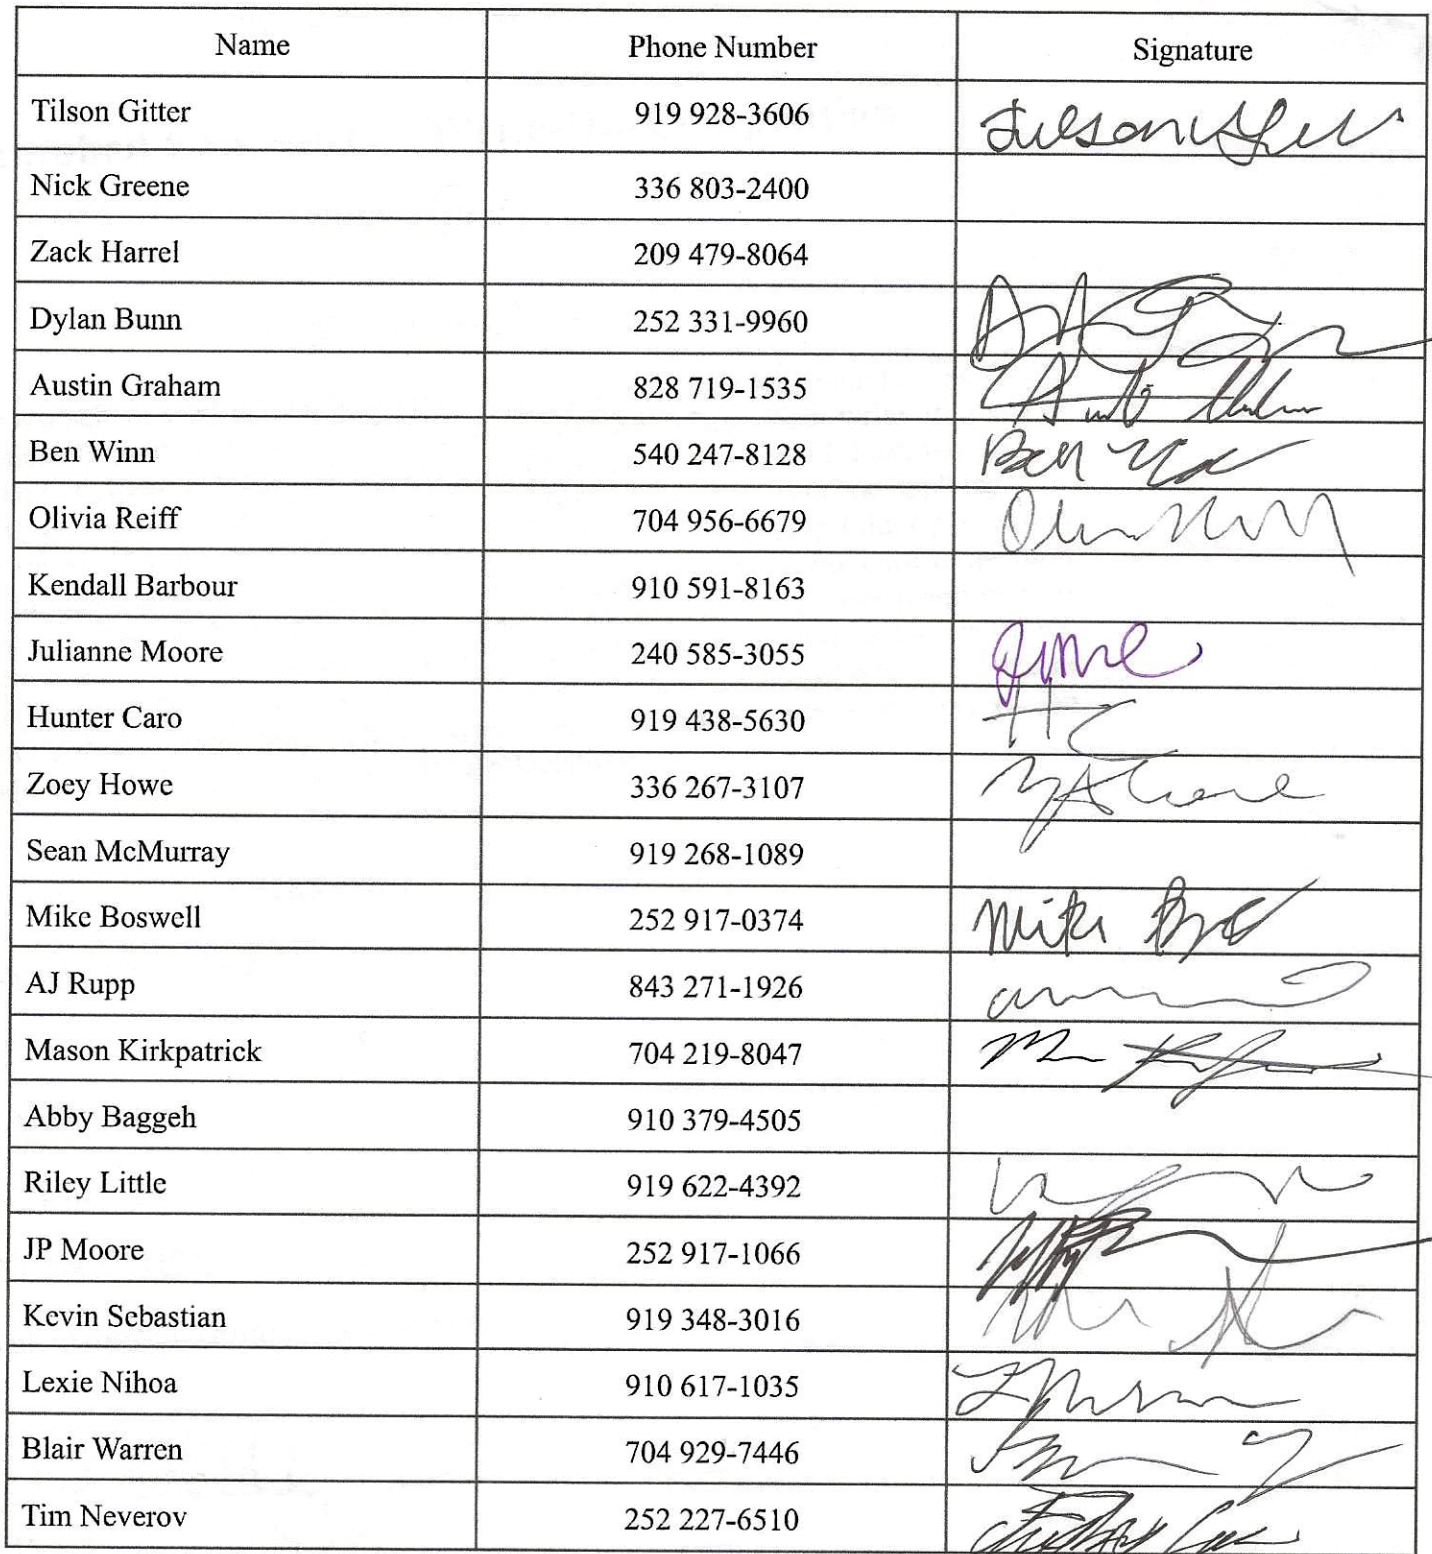 Name Phone Number Signature
Tilson Gitter 919 928-3606
Nick Greene 336 803-2400
Zack Harrel 209 479-8064
Dylan Bunn 252 331-9960
Austin Graham 828 719-1535
Ben Winn 540 247-8128 Ben
Olivia Reiff 704 956-6679
Kendall Barbour 910 591-8163
Julianne Moore 240 585-3055
Hunter Caro 919 438-5630 HC
Zoey Howe 336 267-3107
Sean McMurray 919 268-1089
Mike Boswell 252 917-0374 Mike
AJ Rupp 843 271-1926
Mason Kirkpatrick 704 219-8047
Abby Baggeh 910 379-4505
Riley Little 919 622-4392
JP Moore 252 917-1066
Kevin Sebastian 919 348-3016
Lexie Nihoa 910 617-1035
Blair Warren 704 929-7446
Tim Neverov 252 227-6510